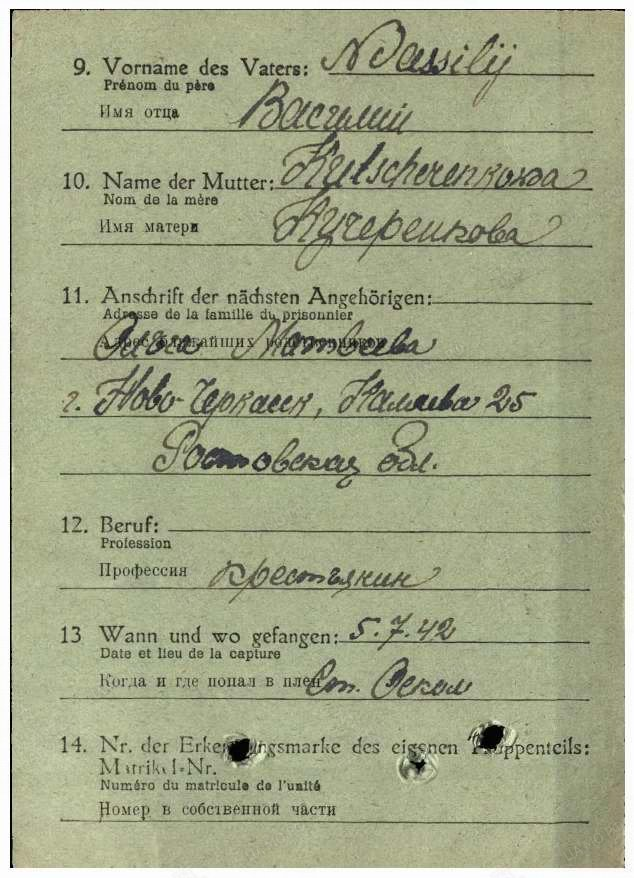 9. Vorname des Vaters: Wassilij
Prénom du père
Имя отца Василий
10. Name der Mutter: Kutscherenkowa
Nom de la mère
Имя матери Кучеренкова
11. Anschrift der nächsten Angehörigen:
Adresse de la famille du prisonnier
Адрес ближайших родственников
Матвеева
г. Ново-Черкасск, 25
Ростовская обл.
12. Beruf:
Profession
Профессия крестьянин
13 Wann und wo gefangen: 5.7.42
Date et lieu de la capture
Когда и где попал в плен Ст. Оскол
14. Nr. der Erkennungsmarke des eigenen Truppenteils:
Matrikel-Nr.
Numéro du matricule de l'unité
Номер в собственной части